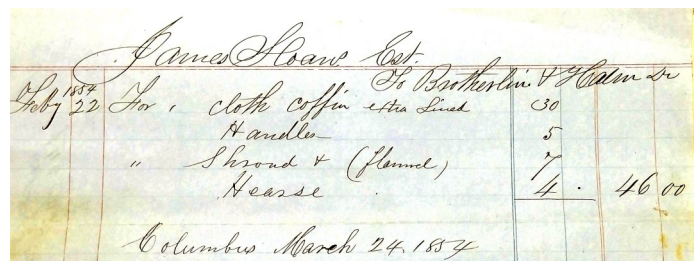 James Sloans Est.
To Brotherlin & Halm Dr
1854
Feby 22 For , cloth coffin extra Lined 30
Handles 5
" Shroud & (flannel) 7
Hearse 4 . 46 00
Columbus March 24. 1854